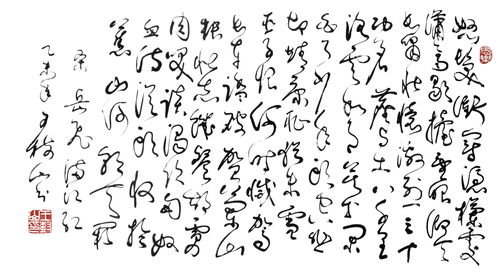 怒髮衝冠憑欄處
瀟瀟雨歇抬望眼仰天
長嘯壯懷激烈三十
功名塵與土八千里
路雲和月莫等閒
白了少年頭空悲
切靖康恥猶未雪
臣子恨何時滅駕
長車踏破賀蘭山
缺壯志飢餐胡虜
肉笑談渴飲匈奴
血待從頭收拾
舊山河朝天闕
岳飛滿江紅
乙未年